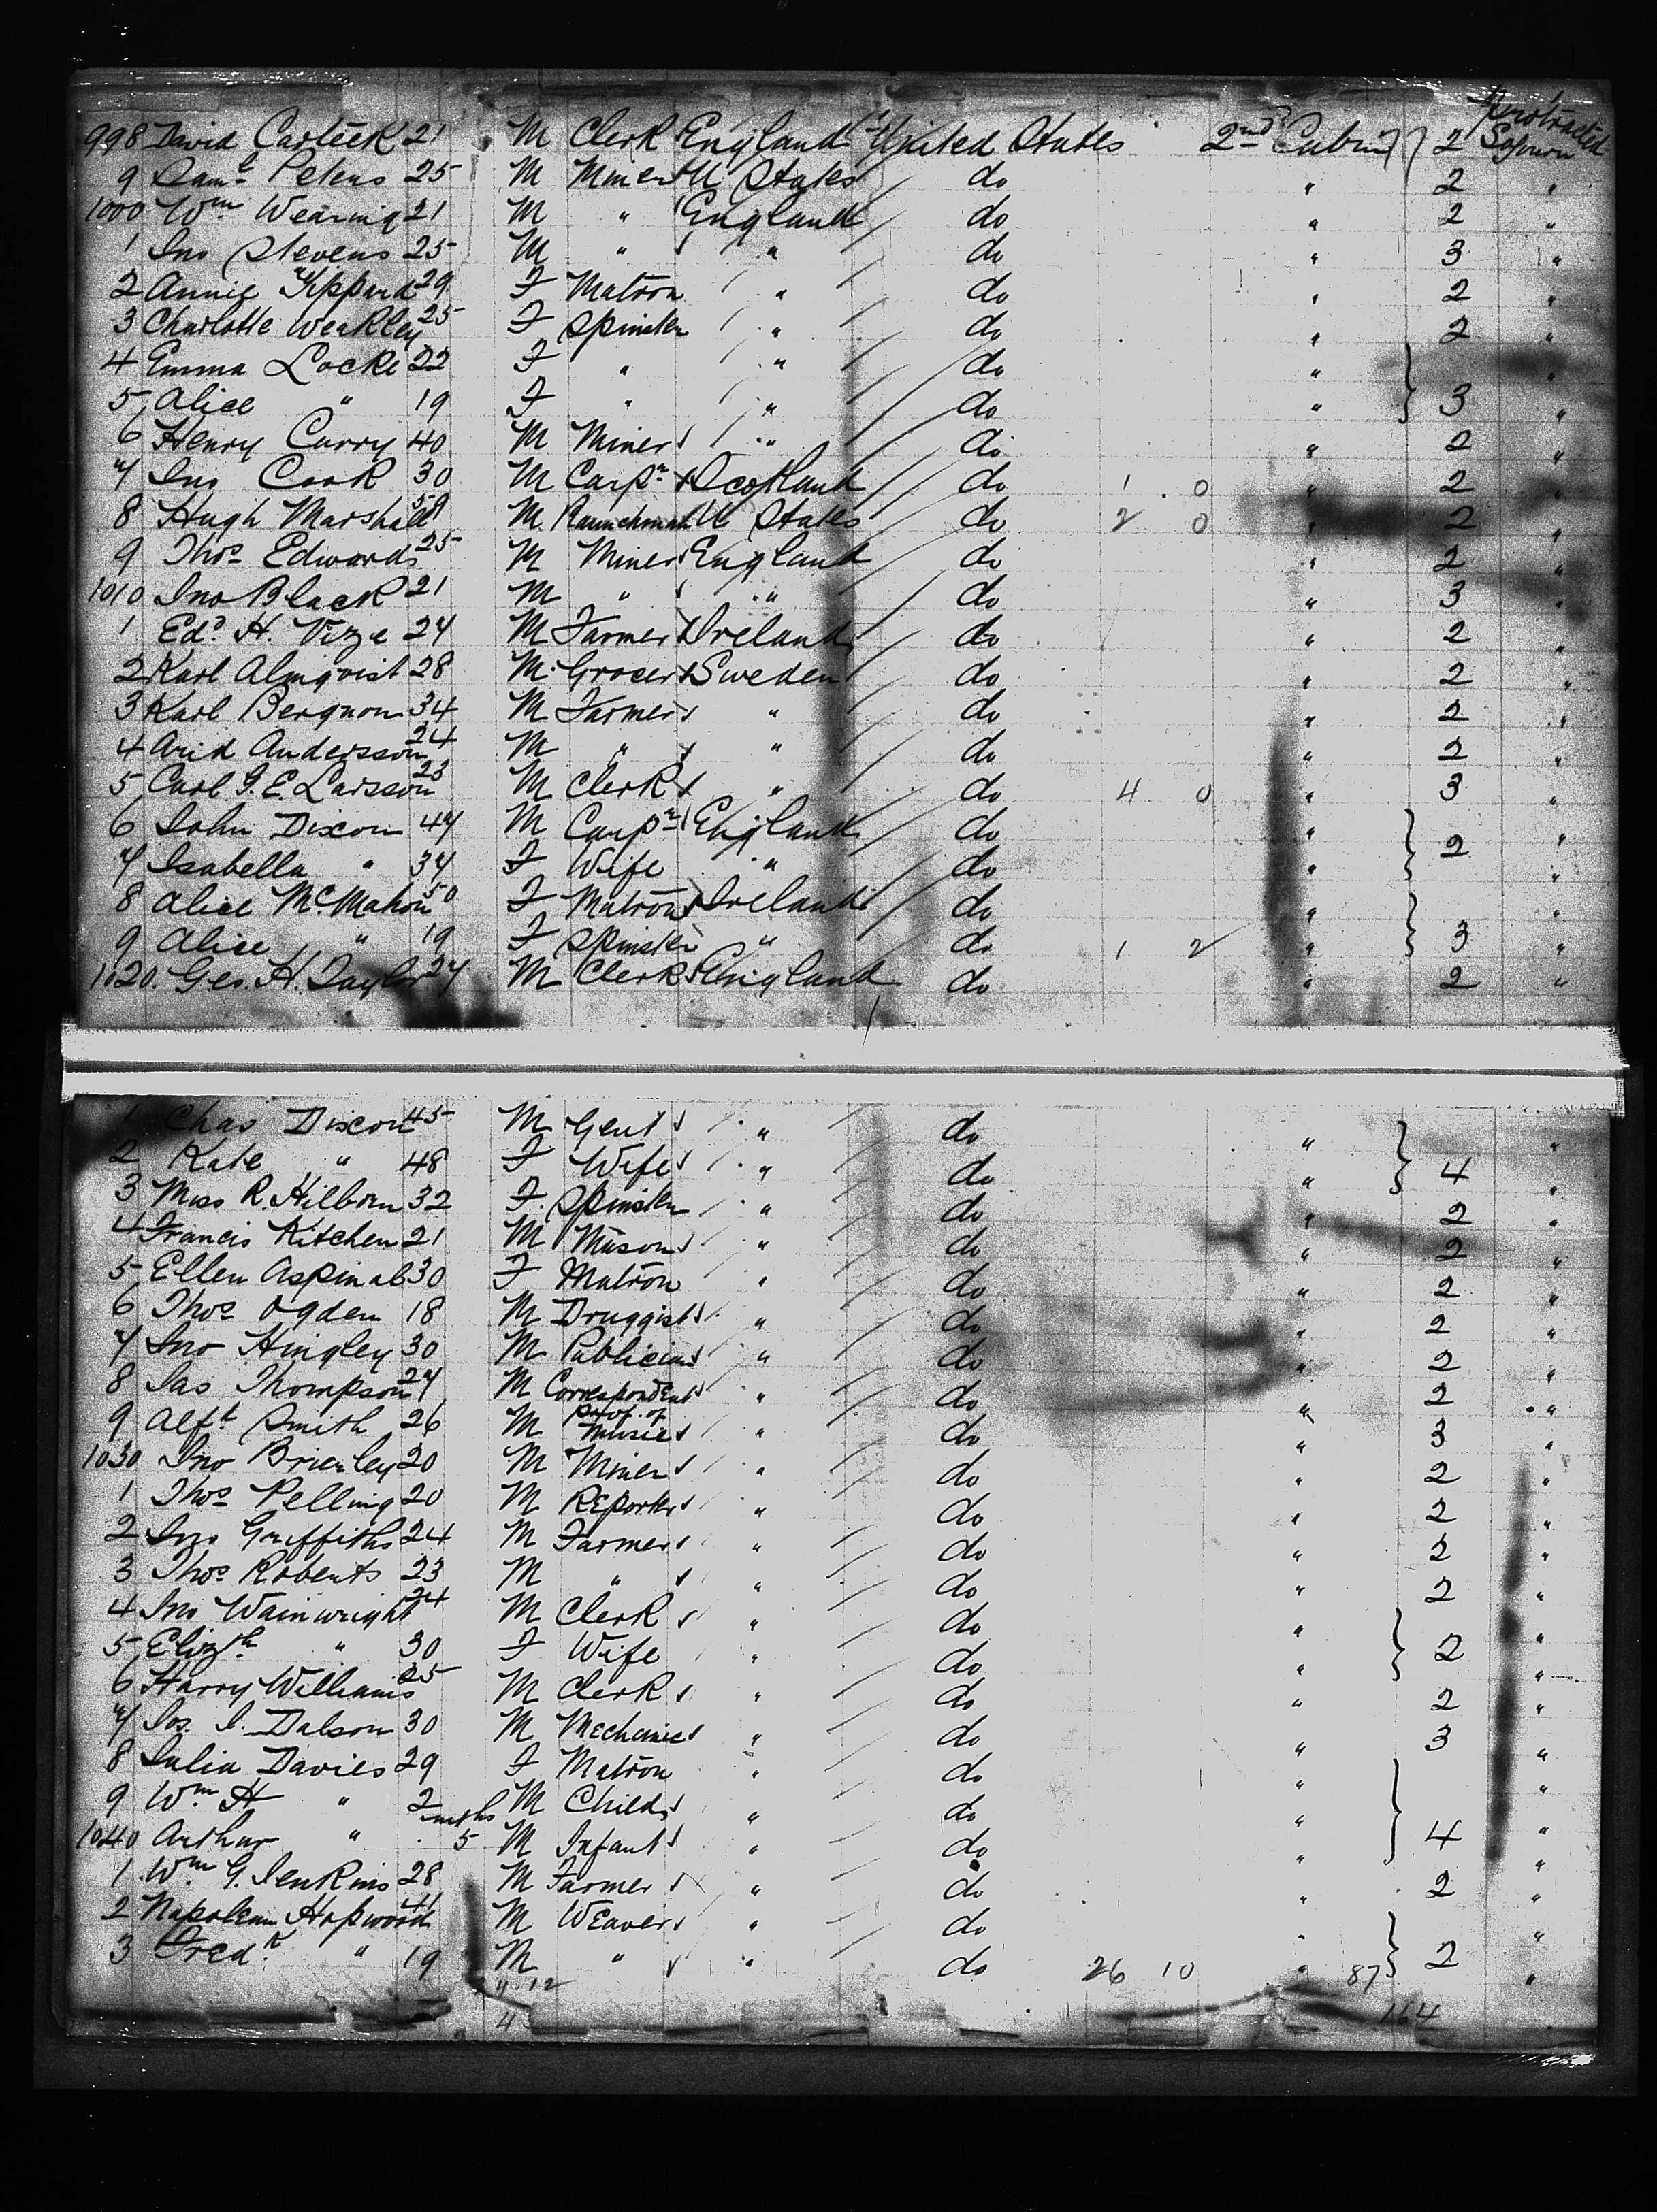 998 David Carleek 21 M Clerk England United States 2nd Cabin 2 Protracted Sojourn
9 Saml Peters 25 M Miner U States do " 2 "
1000 Wm Wearing 21 M " England do " 2 "
1 Jno Stevens 25 M " " do " 3 "
2 Annie Kippard 29 F Matron " do " 2 "
3 Charlotte Weakley 25 F Spinster " do " 2 "
4 Emma Locke 22 F " " do " "
5 Alice " 19 F " " do " 3 "
6 Henry Curry 40 M Miner " do " 2 "
7 Jno Cook 30 M Carpr Scotland do 1 0 " 2 "
8 Hugh Marshall 59 M Raunchman U States do 2 0 " 2 "
9 Thos Edwards 25 M Miner England do " 2 "
1010 Jno Black 21 M " " do " 3 "
1 Edd H. Vize 24 M Farmer Ireland do " 2 "
2 Karl Almqvist 28 M Grocer Sweden do " 2 "
3 Karl Bergnon 34 M Farmer " do " 2 "
4 Arid Andersson 24 M " " do " 2 "
5 Carl G. E. Larsson 23 M Clerk " do 4 0 " 3 "
6 John Dixon 47 M Carpr England do " "
7 Isabella " 37 F Wife " do " 2 "
8 Alice McMahon 50 F Matron Ireland do " "
9 Alice " 19 F Spinster " do 1 2 " 3 "
1020. Geo. H. Taylor 27 M Clerk England do " 2 "
1 Chas Dixon 45 M Gent " do " "
2 Kate " 48 F Wife " do " 4 "
3 Miss R. Hilborn 32 F. Spinster " do " 2 "
4 Francis Kitchen 21 M Mason " do " 2 "
5 Ellen Aspinal 30 F Matron " do " 2 "
6 Thos Ogden 18 M Druggist " do " 2 "
7 Jno Hingley 30 M Publician " do " 2 "
8 Jas Thompson 27 M Correspondent " do " 2 "
9 Alft Smith 26 M Prof. of Music " do " 3 "
1030 Jno Brierley 20 M Miner " do " 2 "
1 Thos Pelling 20 M Reporter " do " 2 "
2 Jno Griffiths 24 M Farmer " do " 2 "
3 Thos Roberts 23 M " " do " 2 "
4 Jno Wainwright 24 M Clerk " do " "
5 Elizth " 30 F Wife " do " 2 "
6 Harry Williams 25 M Clerk " do " 2 "
7 Jos. J. Dalson 30 M Mechanic " do " 3 "
8 Julia Davies 29 F Matron " do " "
9 Wm H " 2 M Child " do " "
1040 Arthur " mths 5 M Infant " do " 4 "
1 Wm G. Jenkins 28 M Farmer " do " 2 "
2 Napoleon Hopwood 41 M Weaver " do " "
3 Fredk " 19 M " " do 26 10 " 87 2 "
" 12
4 164